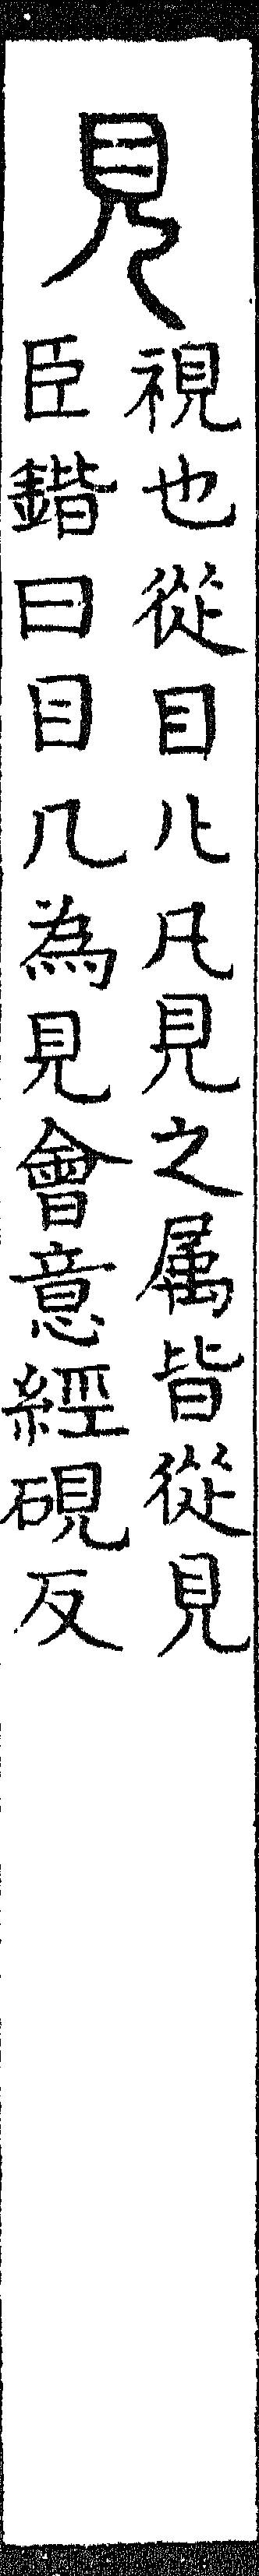 見
視也從目儿凡見之属皆從見
臣鍇曰目几為見會意經硯反